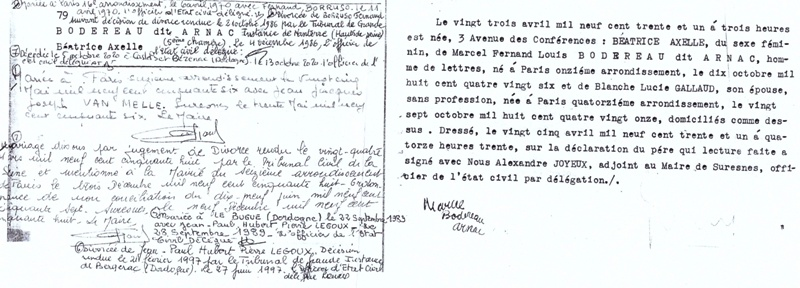 Mariée à Paris 14è arrondissement, le 6 avril 1970 avec Fernand, BORRUSO. le 11
avril 1970. L'officier d'Etat civil délégué. Divorcée de
79 suivant décision de divorce rendue le 2 octobre 1986 par le Tribunal de Grande
BODEREAU dit ARNAC Instance de Nanterre (Hauts-de-Seine)
le 4 novembre 1986, l'officier de
Béatrice Axelle l'Etat civil délégué
Décédée le 5 octobre 2020 à
le 13 octobre 2020 l'officier de l'
état civil délégué
Mariée à Paris seizième arrondissement le vingt cinq
Mai mil neuf cent cinquante six avec Jean Jacques
Joseph VAN MELLE. Suresnes le trente Mai mil neuf
cent cinquante six. Le Maire
Mariage dissous par jugement de Divorce rendu le vingt-quatre
mil neuf cent cinquante huit par le Tribunal Civil de la
Seine et mentionné à la Mairie du Seizième arrondissement
de Paris le trois Décembre mil neuf cent cinquante huit.
nance de non conciliation du dix-neuf Juin mil neuf cent
cinquante sept. Suresnes, le neuf Décembre mil neuf cent
cinquante huit. Le Maire.
Mariée à LE BUGUE (Dordogne) le 22 Septembre 1989
avec Jean-Paul, Hubert Pierre LEGOUX. Le
28 Septembre 1989 l'officier de l'Etat-
Civil Délégué
Divorcée de Jean-Paul Hubert Pierre LEGOUX. Décision
rendue le 20 février 1997 par le Tribunal de Grande Instance
de Bergerac (Dordogne). le 27 juin 1997. L'officier d'Etat Civil
délégué
Le vingt trois avril mil neuf cent trente et un á trois heures
est née, 3 Avenue des Conférences : BÉATRICE AXELLE, du sexe fémi-
nin, de Marcel Fernand Louis BODEREAU DIT ARNAC, hom-
me de lettres, né á Paris onziéme arrondissement, le dix octobre mil
huit cent quatre vingt six et de Blanche Lucie GALLAUD, son épouse,
sans profession, née á Paris quatorziéme arrondissement, le vingt
sept octobre mil huit cent quatre vingt onze, domiciliés comme des-
sus . Dressé, le vingt cinq avril mil neuf cent trente et un á qua-
torze heures trente, sur la déclaration du pére qui lecture faite a
signé avec Nous Alexandre JOYEUX, adjoint au Maire de Suresnes, offi-
cier de l'état civil par délégation./.
Marcel
Bodereau
Arnac